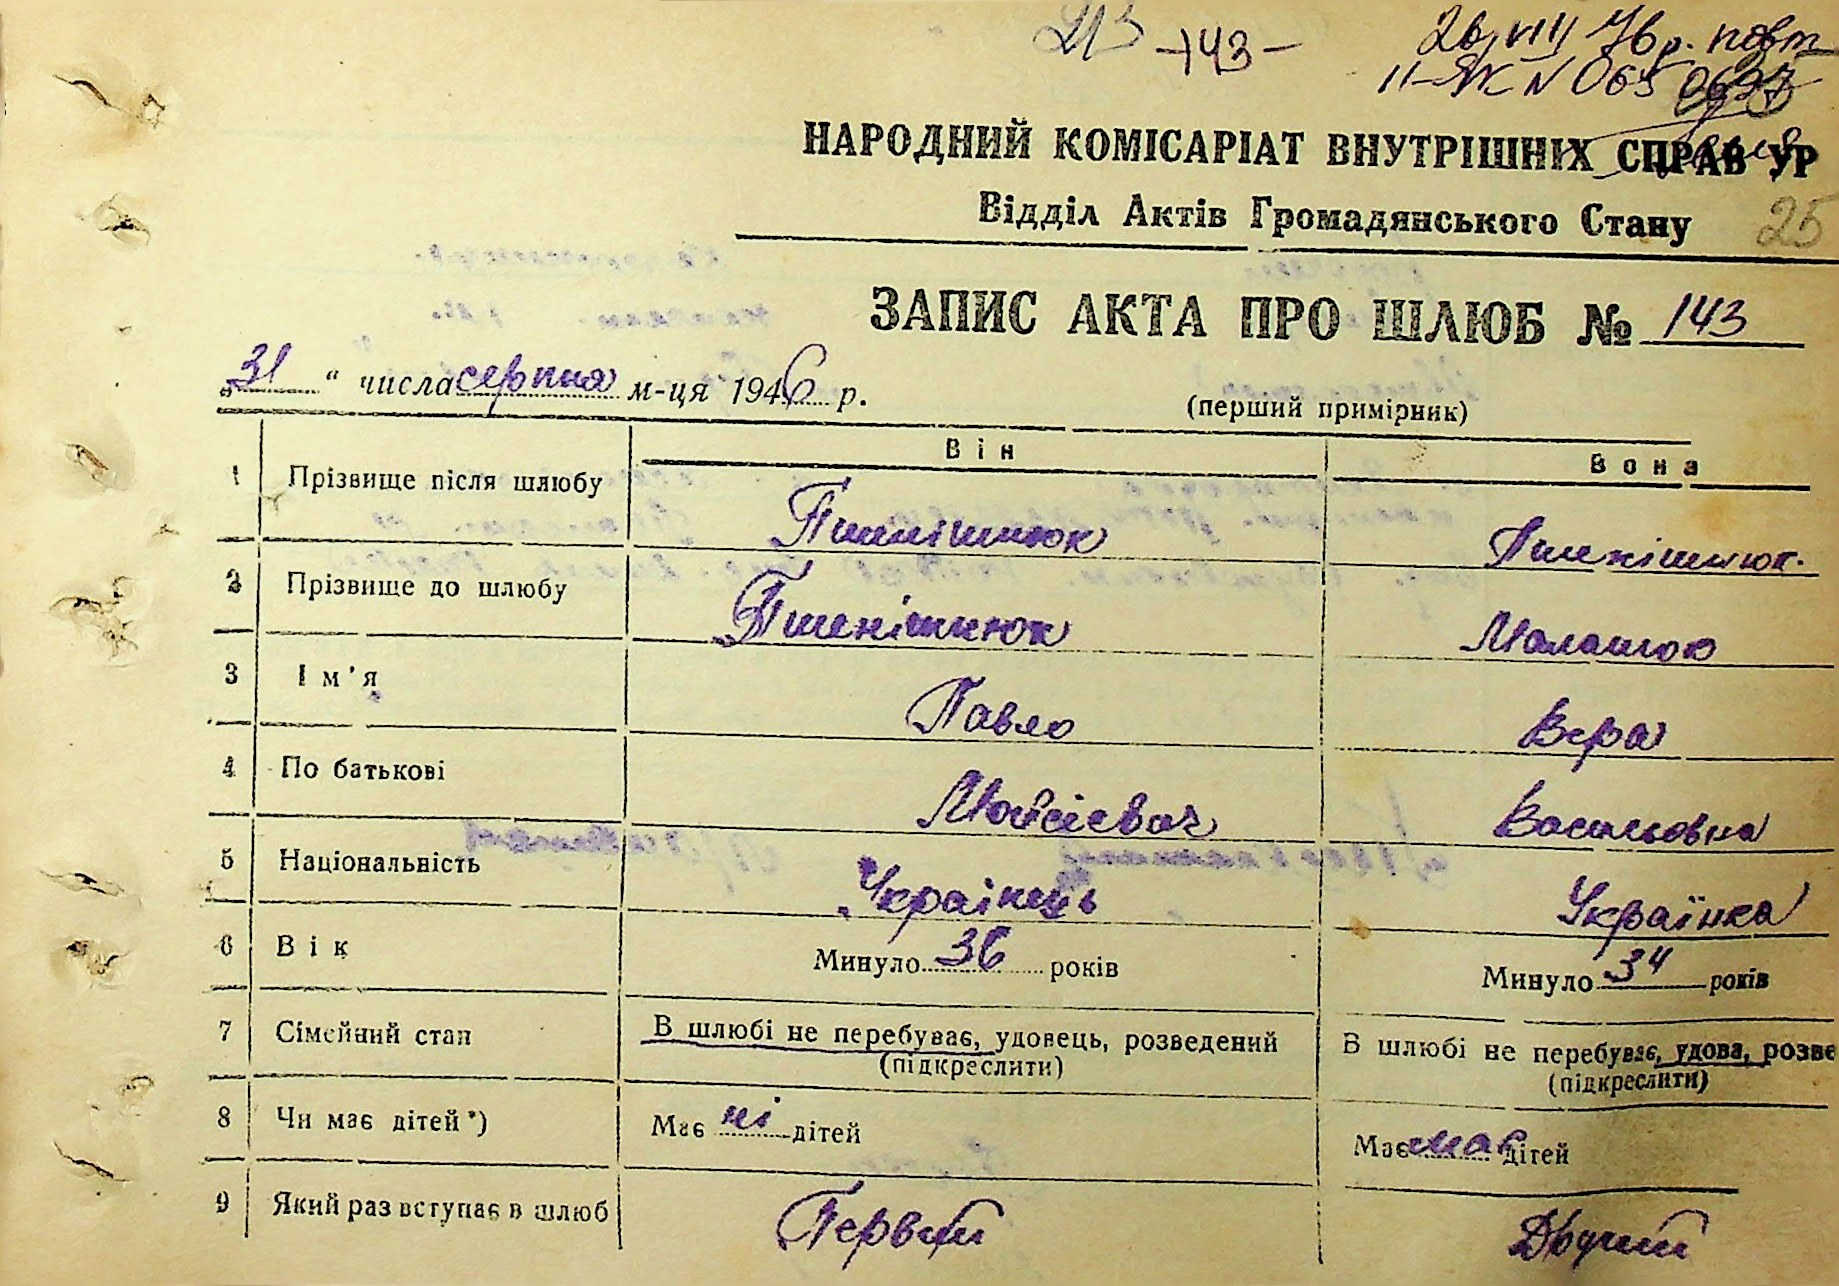 213 -143-
26 VIII 76 р. повт
II-ЯК N 065
НАРОДНИЙ КОМІСАРІАТ ВНУТРІШНІХ СПРАВ УР
Відділ Актів Громадянського Стану 25
ЗАПИС АКТА ПРО ШЛЮБ № 143
„31“ числа серпня м-ця 1946 р.
(перший примірник)
Він Вона
1 Прізвище після шлюбу Пшенішнюк Пшенішнюк.
2 Прізвище до шлюбу Пшенішнюк Малашок
3 Ім'я Павло Вера
4 По батькові Мойсієвич Васильовна
5 Національність Українець Українка
6 Вік Минуло 36 років Минуло 34 років
7 Сімейний стан В шлюбі не перебуває, удовець, розведений В шлюбі не перебуває, удова, розве
(підкреслити) (підкреслити)
8 Чи має дітей*) Має ні дітей Має має дітей
9 Який раз вступає в шлюб Первий Двучий